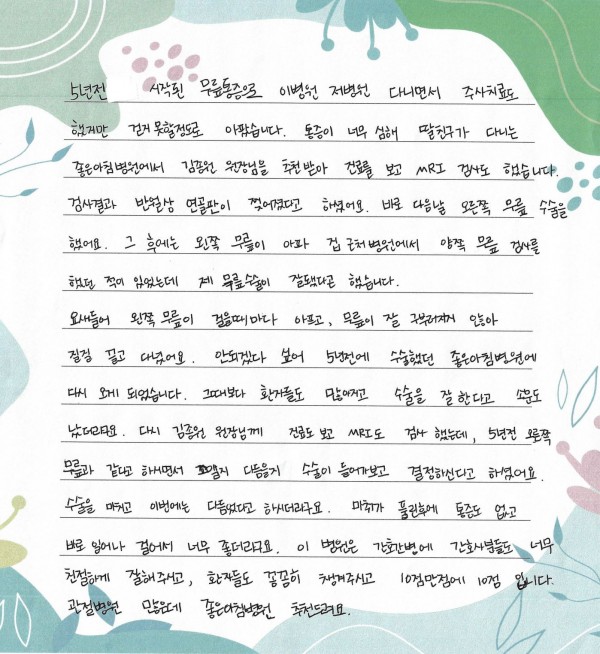 5년전 시작된 무릎통증으로 이병원 저병원 다니면서 주사치료도
했지만 걷지 못할정도로 아팠습니다. 통증이 너무 심해 딸친구가 다니는
좋은아침병원에서 김종원 원장님을 추천받아 진료를 보고 MRI 검사도 했습니다.
검사결과 반월상 연골판이 찢어졌다고 하셨어요. 바로 다음날 오른쪽 무릎 수술을
했어요. 그 후에는 왼쪽 무릎이 아파 집 근처병원에서 양쪽 무릎 검사를
했던 적이 있었는데 제 무릎수술이 잘됐다고 했습니다.
요새들어 왼쪽 무릎이 걸을때마다 아프고, 무릎이 잘 구부러지지 않아
질질 끌고 다녔어요. 안되겠다 싶어 5년전에 수술했던 좋은아침병원에
다시 오게 되었습니다. 그때보다 환자들도 많아지고 수술을 잘한다고 소문도
났더라구요. 다시 김종원 원장님께 진료도보고 MRI도 검사 했는데, 5년전 오른쪽
무릎과 같다고 하시면서 꼬맬지 다듬을지 수술이 들어가보고 결정하신다고 하셨어요.
수술을 마치고 이번에는 다듬었다고 하시더라구요. 마취가 풀린후에 통증도 없고
바로 일어나 걸어서 너무 좋더라구요. 이 병원은 간호간병에 간호사분들도 너무
친절하게 잘해주시고, 환자들도 꼼꼼히 챙겨주시고 10점만점에 10점 입니다.
관절병원 많은데 좋은아침병원 추천드려요.